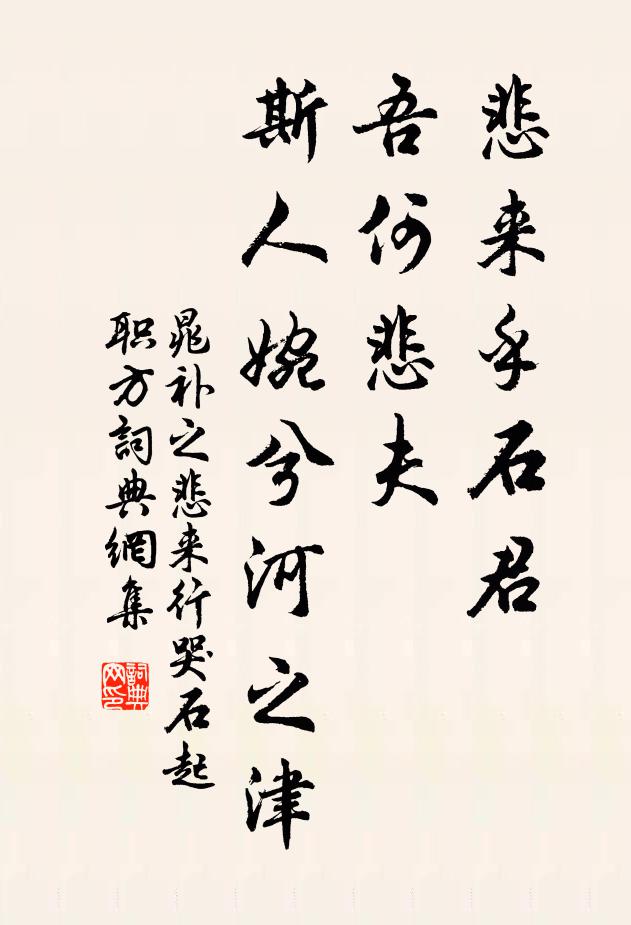 悲来乎石君
吾何悲夫
斯人婉兮河之津
晁补之悲来行哭石起
职方詞典網集
詞典網印